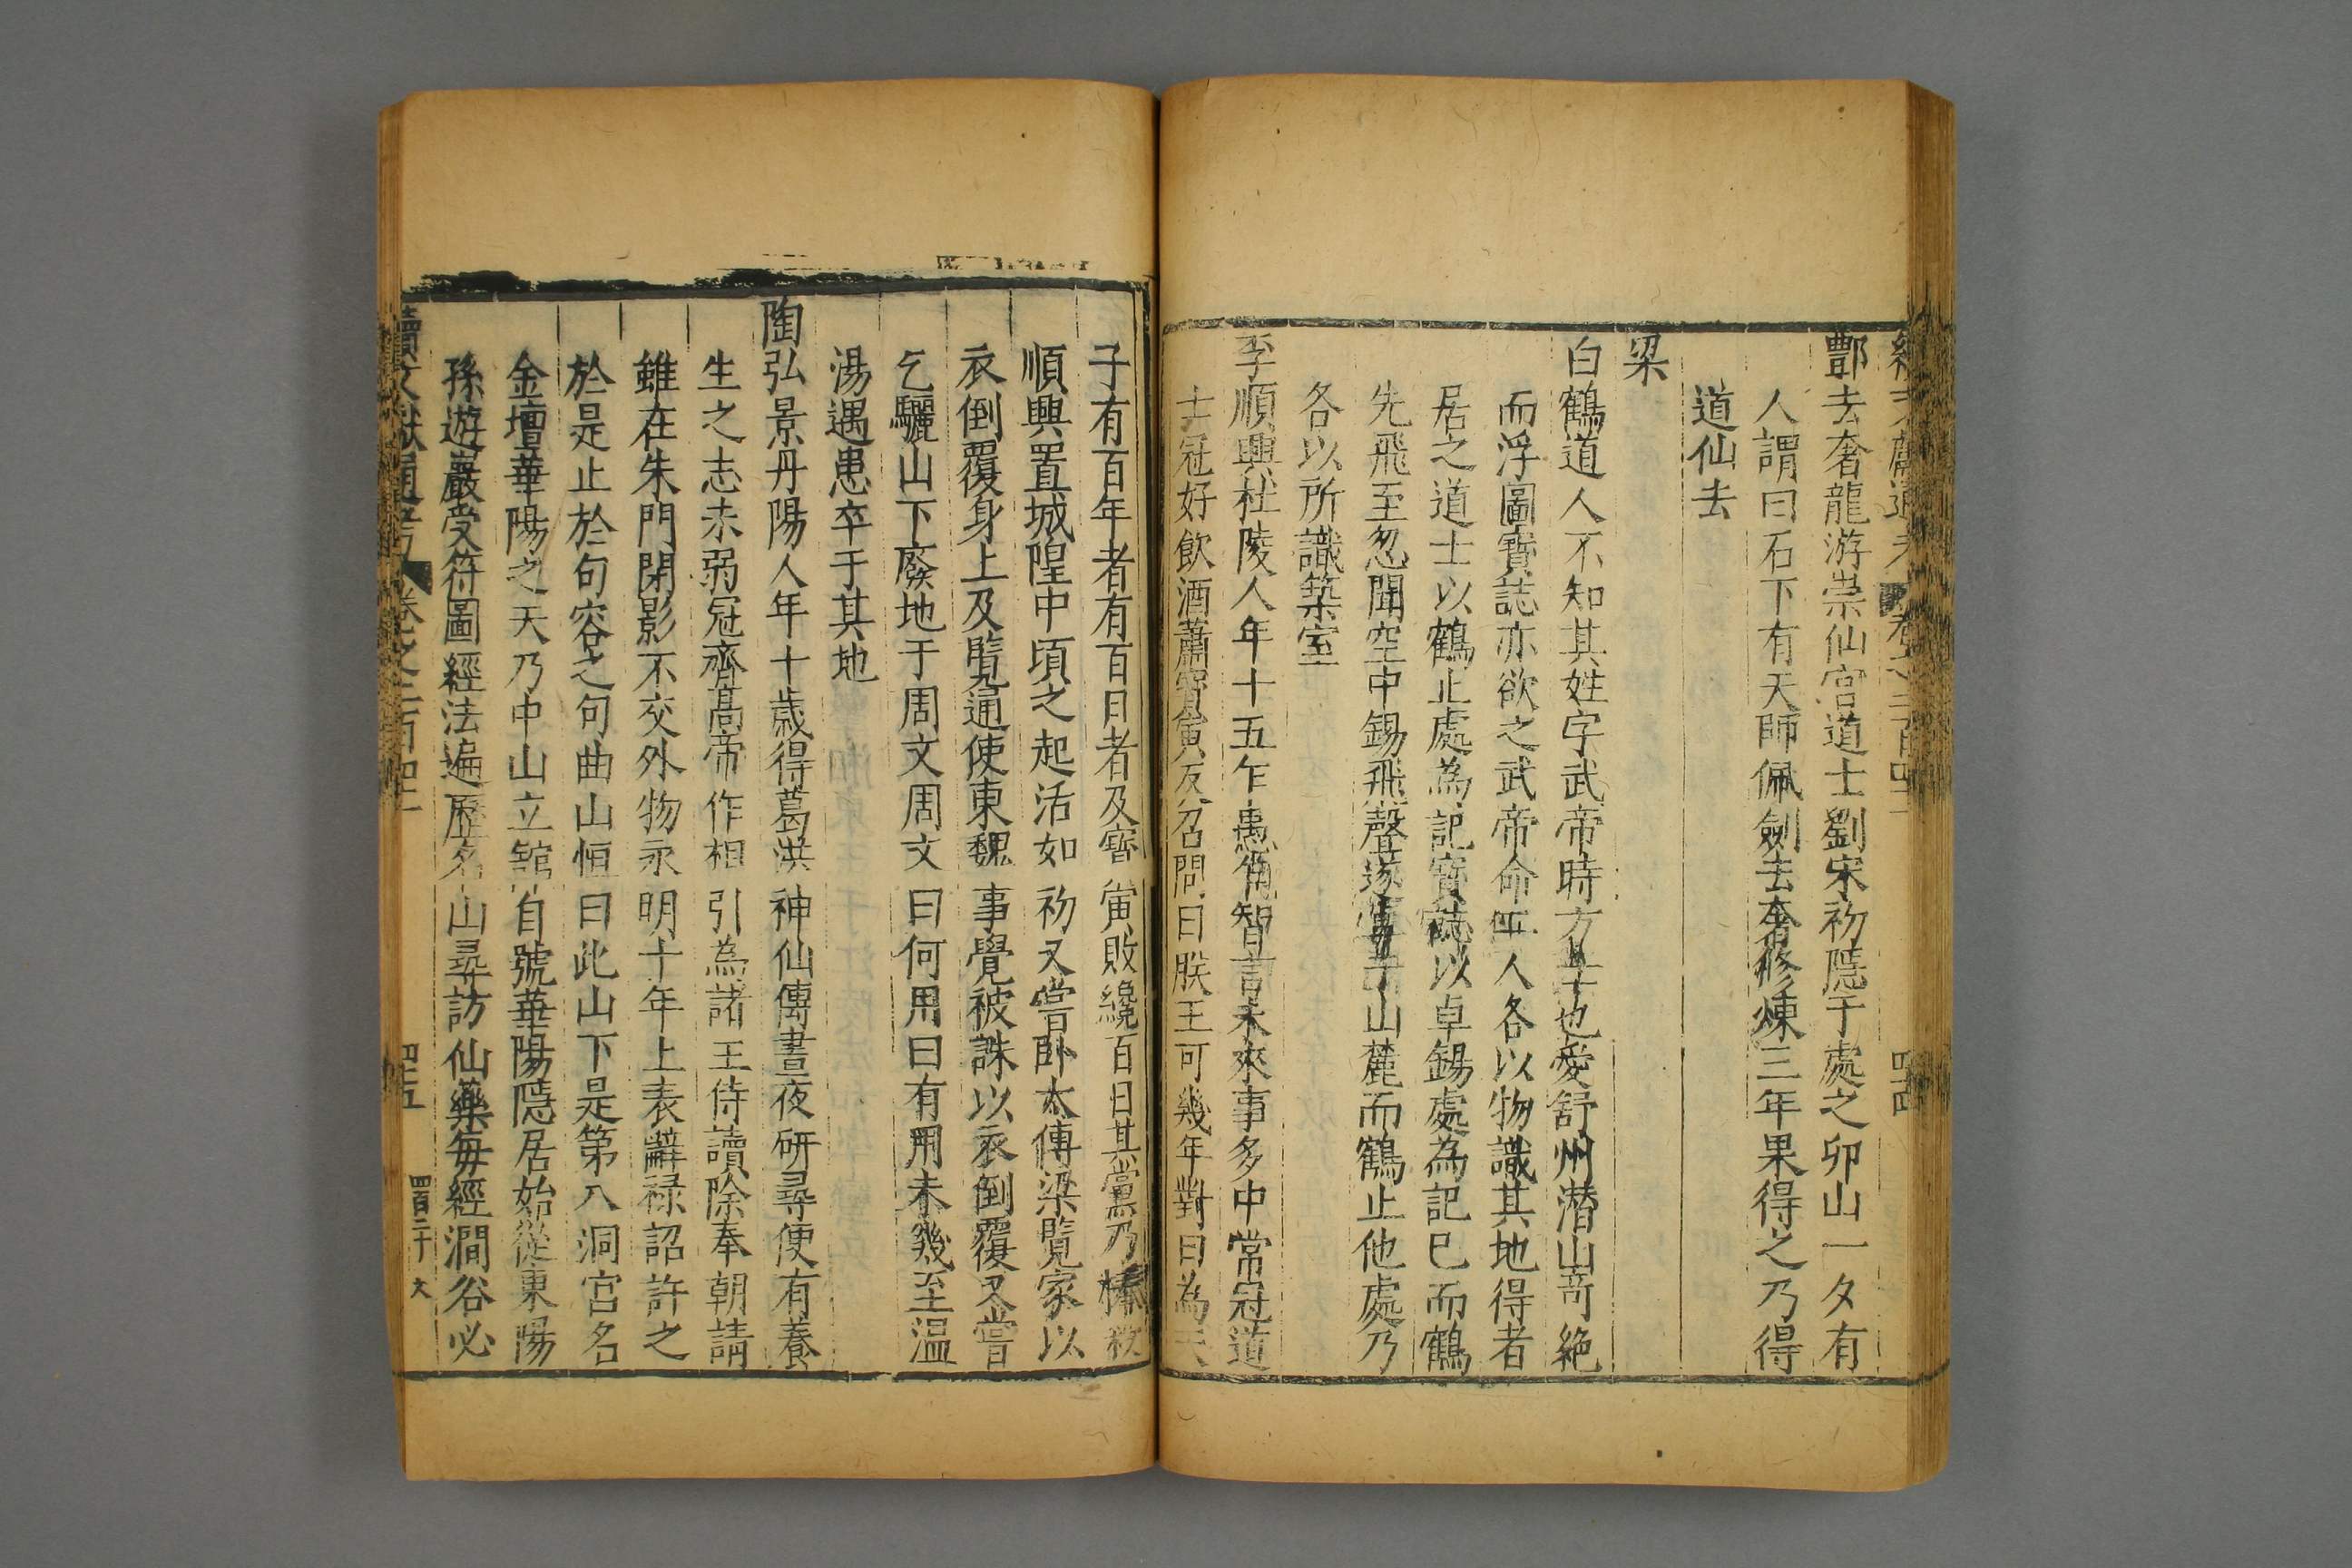 續文獻通考 卷之二百四十二 四十四
酆去奢龍游崇仙宮道士劉宋初隱于處之卯山一夕有
人謂曰石下有天師佩劍去奢修煉三年果得之乃得
道仙去
梁
白鶴道人不知其姓字武帝時方士也愛舒州潛山奇絶
而浮圖寶誌亦欲之武帝命二人各以物識其地得者
居之道士以鶴止處為記寶誌以卓錫處為記巳而鶴
先飛至忽聞空中錫飛聲遂卓于山麓而鶴止他處乃
各以所識築室
李順興杜陵人年十五乍愚乍智言未來事多中常冠道
士冠好飲酒蕭寶寅反召問曰朕王可幾年對曰為天
子有百年者有百日者及寶寅敗纔百日其黨乃棒殺
順興置城隍中頃之起活如初又嘗卧太傅梁覽家以
衣倒覆身上及覽通使東魏事覺被誅以衣倒覆又嘗
乞驪山下廢地于周文周文曰何用曰有用未幾至温
湯遇患卒于其地
陶弘景丹陽人年十歲得葛洪神仙傳晝夜研尋便有養
生之志未弱冠齊高帝作相引為諸王侍讀除奉朝請
雖在朱門閉影不交外物永明十年上表辭禄詔許之
於是止於句容之句曲山恒曰此山下是第八洞宮名
金壇華陽之天乃中山立館自號華陽隱居始從東陽
孫遊巖受符圖經法遍歷名山尋訪仙藥每經澗谷必
續文獻通考 卷之二百四十二 四十五 四百二十 大